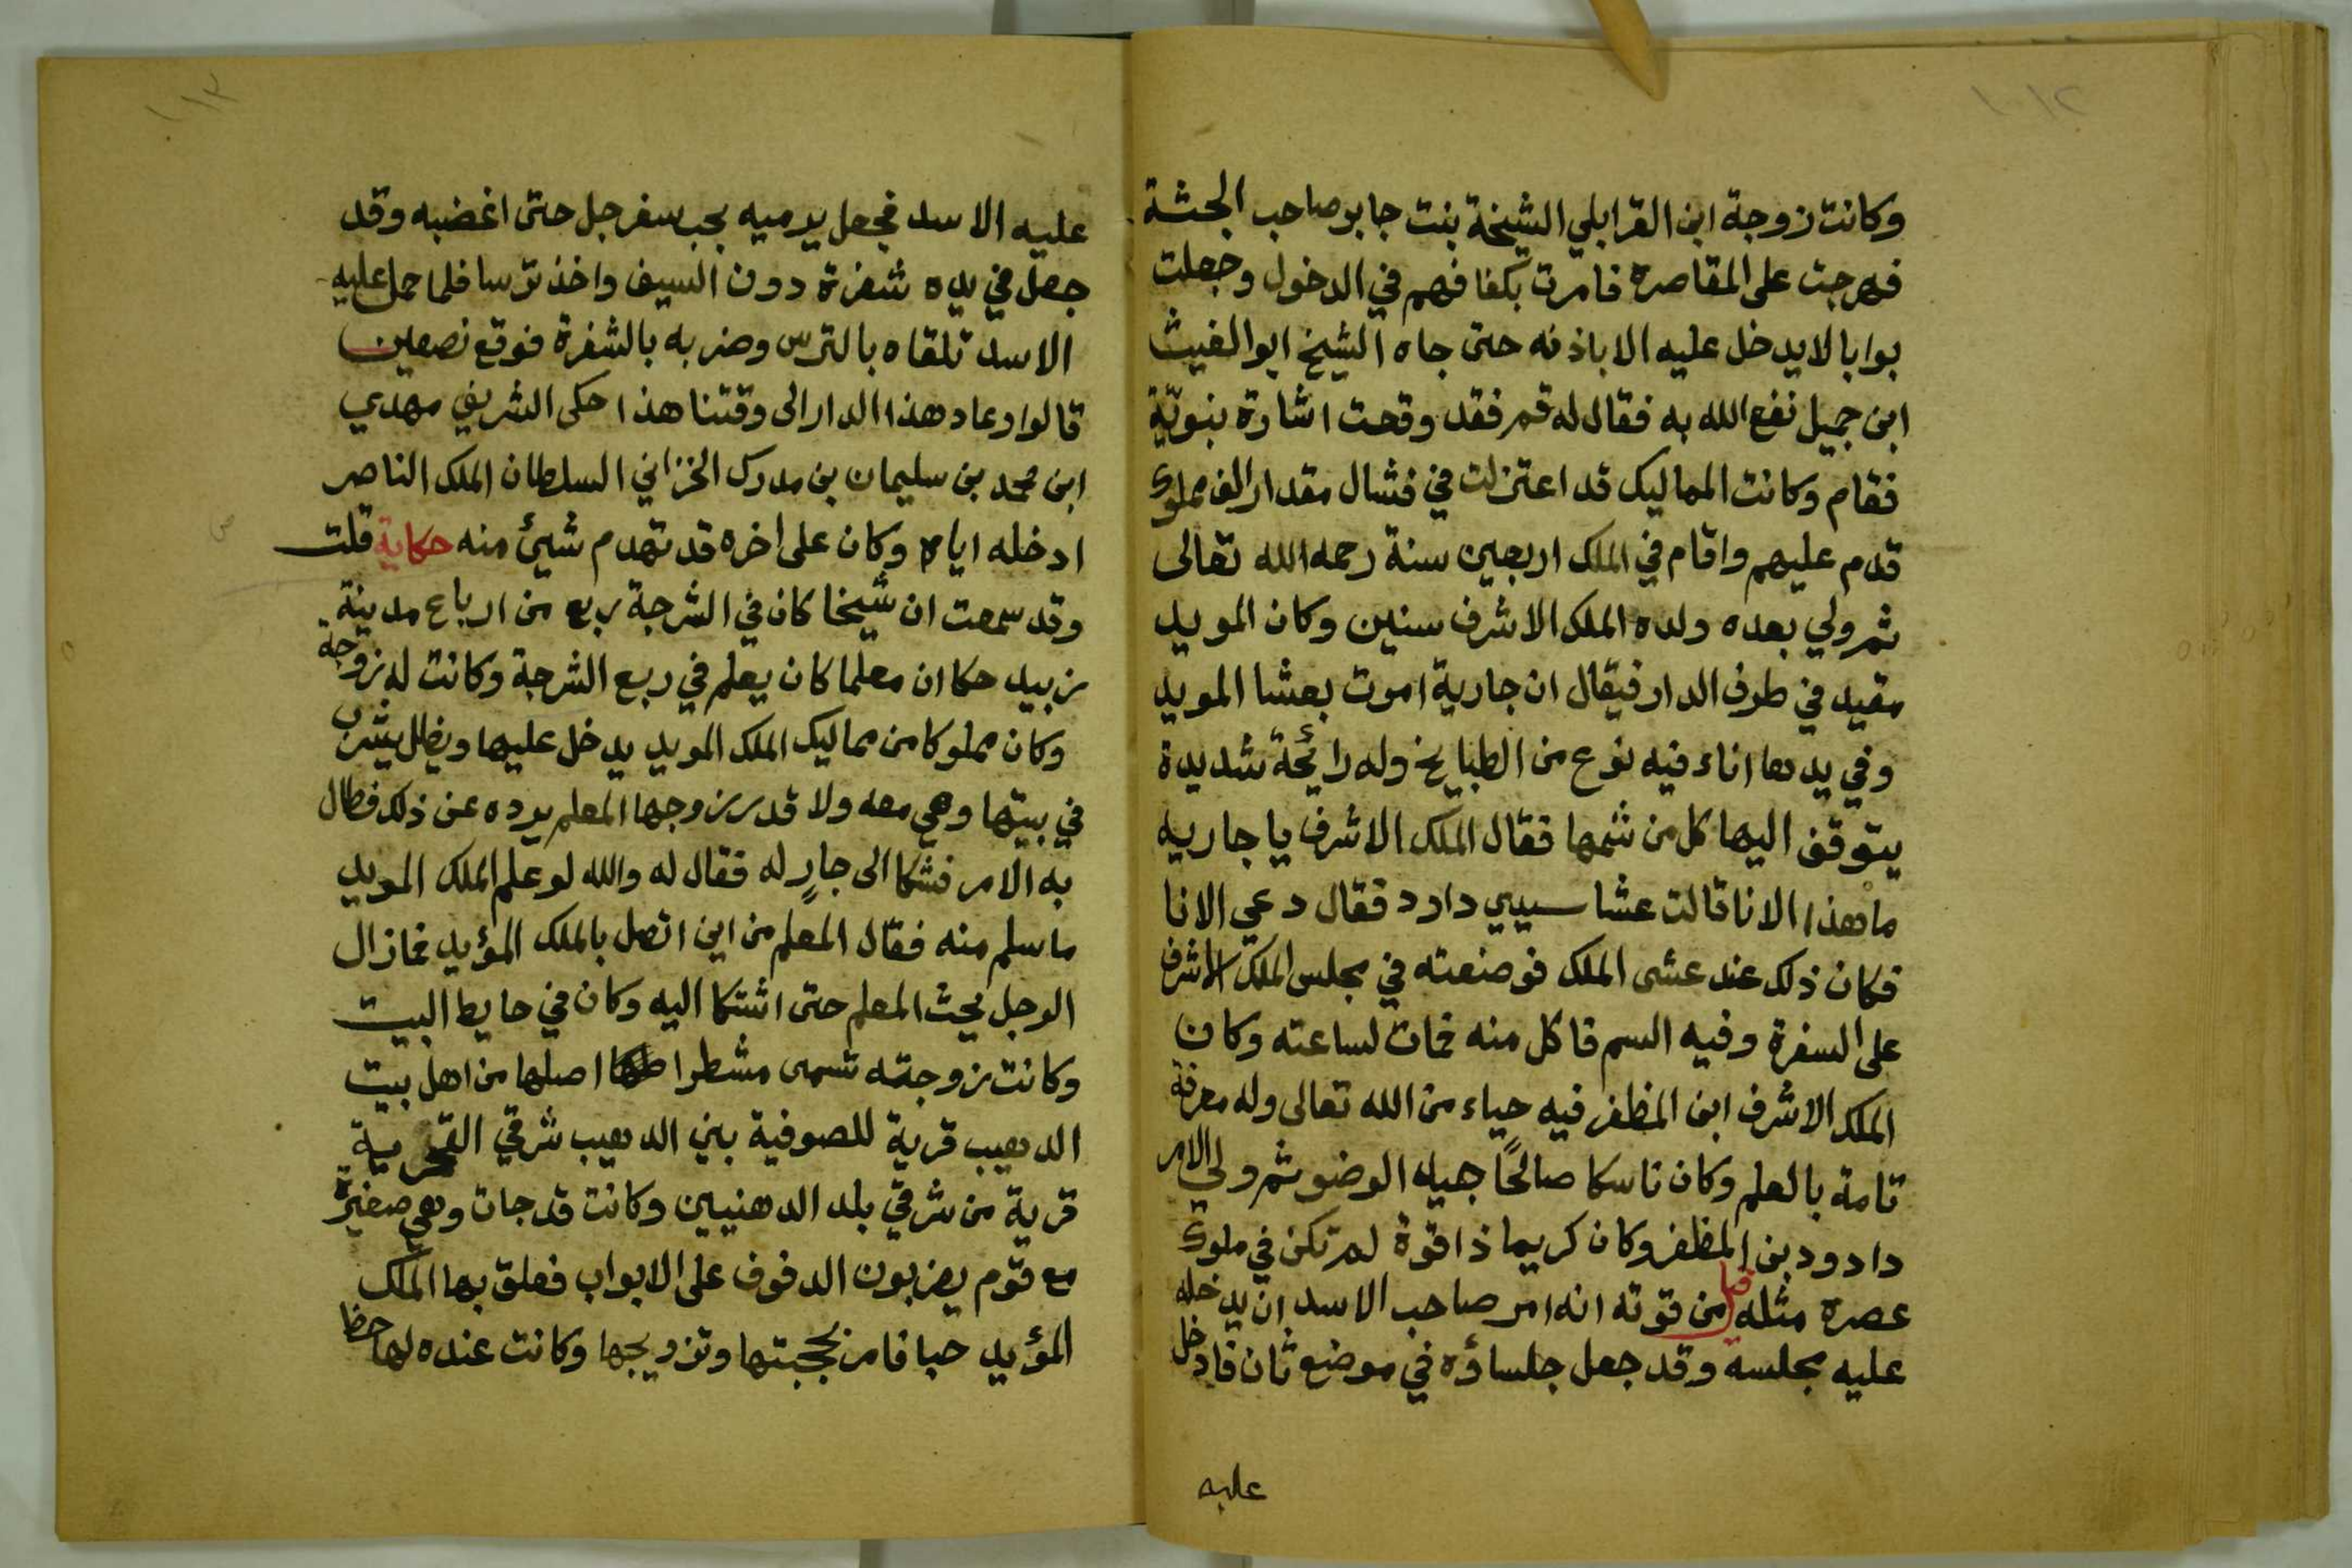 وكانت زوجة ابن القرابلي الشيخة بنت جابر صاحب الجثة
فهرجت على المقاصرة فامرت بكفافهم في الدخول وجعلت
بوابا لا يدخل عليه الا باذنه حتى جاه الشيخ ابوالغيث
ابن جميل نفع الله به فقال له قم فقد وقحت اشارة بنويّة
فقام وكانت المماليك قد اعتزلت في فشال مقدار الف مملوك
قدم عليهم واقام في الملك اربعين سنة رحمه الله تعالى
ثم ولي بعده ولده الملك الاشرف سنين وكان المويد
مقيد في طرف الدار فيقال ان جارية اموت بعشا المويد
وفي يدها اناء فيه نوع من الطبايخ وله رائحة شديدة
يتوقف اليها كل من شمها فقال الملك الاشرف يا جاريه
ما هذا الانا قالت عشا سييي داود فقال دعي الانا
فكان ذلك عند عشى الملك فوضعته في مجلس الملك الاشرف
على السفرة وفيه السم فاكل منه فمات لساعته وكان
الملك الاشرف ابن المظفر فيه حياء من الله تعالى وله معرفة
تامة بالعلم وكان ناسكا صالحًا جيله الوضو ثم ولي الامر
داودد بن المظفر وكان كريما ذا قوة لم تكن في ملوك
عصره مثله قيل من قوته انه امر صاحب الاسد ان يدخله
عليه مجلسه وقد جعل جلساؤه في موضع ثان فادخل
عليه
عليه الاسد فجعل يرميه بحب سفرجل حتى اغضبه وقد
جعل في يده شفرة دون السيف واخذ ترسا فلما حمل عليه
الاسد تلقاه بالترس وضربه بالشفرة فوقع نصفين
قالوا وعاد هذا الدار الى وقتنا هذا حكى الشريف مهدي
ابن محمد بن سليمان بن مدرك الخزاني السلطان الملك الناصر
ادخله اياه وكان على اخره قد تهدم شيئ منه حكاية قلت
وقد سمعت ان شيخا كان في الشرجة ربع من ارباع مدينة
زبيد حكا ان معلما كان يعلم في ربع الشرجة وكانت له زوجة
وكان مملوكا من مماليك الملك المويد يدخل عليها ويظل يشرب
في بيتها وهي معه ولا قدر زوجها المعلم يرده عن ذلك فطال
به الامر فشكا الى جارٍ له فقال له والله لو علم الملك المويد
ما سلم منه فقال المعلم من اين اتصل بالملك المؤيد فمازال
الرجل يحث المعلم حتى اشتكا اليه وكان في حايط البيت
وكانت زوجته تسمى مشطرا اصلها من اهل بيت
الدهيب قرية للصوفية بني الدهيب شرقي القحرية
قرية من شرقي بلد الدهنيين وكانت قد جات وهي صغيرة
مع قوم يضربون الدفوف على الابواب فعلق بها الملك
المؤيد حبا فامر بحجبتها وتزويجها وكانت عنده لها حظا